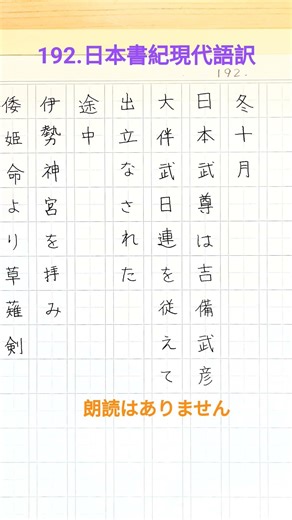 192.日本書紀現代語訳
192.
冬十月
日本武尊は吉備武彦
大伴武日連を従えて
出立なされた
途中
伊勢神宮を拝み
倭姫命より草薙剣
朗読はありません